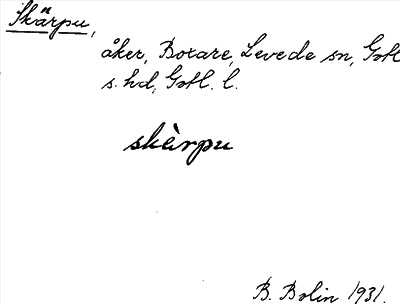 Skärpu,
åker, Botare, Levede sn, Gotl
s. hd, Gotl. l.
skàrpu
B. Bolin 1931.